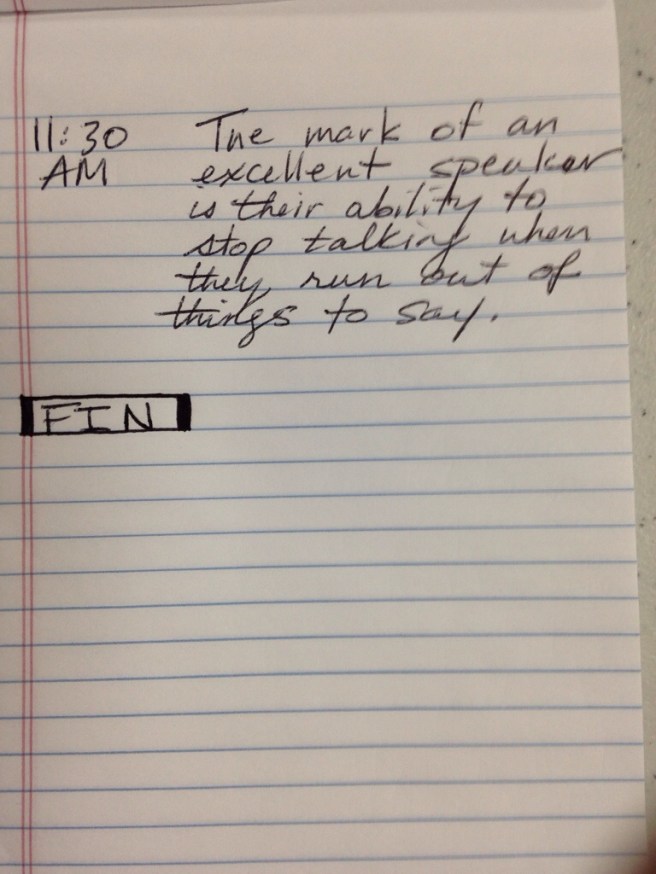 11:30 The mark of an
AM excellent speaker
is their ability to
stop talking when
they run out of
things to say.
FIN